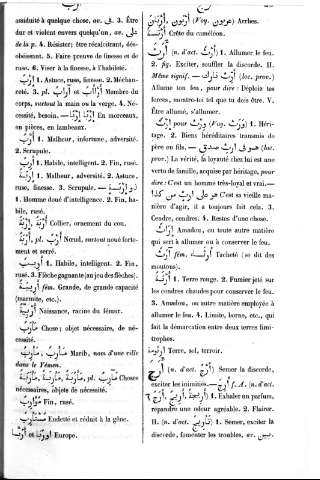 assiduité à quelque chose, av. في. 3. Être
dur et violent envers quelqu'un, av. على
de la p. 4. Résister; être récalcitrant, dés-
obéissant. 5. Faire preuve de finesse et de
ruse. 6. Viser à la finesse, à l'habileté.
إرب 1. Astuce, ruse, finesse. 2. Méchan-
ceté. 3. pl. آراب et Membre du
corps, surtout la main ou la verge. 4. Né-
cessité, besoin. — إربا إربا En morceaux,
en pièces, en lambeaux.
1. Malheur, infortune, adversité.
2. Scrupule.
1. Habile, intelligent. 2. Fin, rusé.
1. Malheur, adversité. 2. Astuce,
ruse, finesse. 3. Scrupule. —
1. Homme doué d'intelligence. 2. Fin, ha-
bile, rusé.
Collier, ornement du cou.
pl. Nœud, surtout noué forte-
ment et serré.
أريب 1. Habile, intelligent. 2. Fin,
rusé. 3. Flèche gagnante (au jeu des flèches).
أريبة fém. Grande, de grande capacité
(marmite, etc.).
Naissance, racine du fémur.
Chose; objet nécessaire, de né-
cessité.
مأرب, مارب Marib, nom d'une ville
dans le Yémen.
مأربة, pl. مآرب Choses
nécessaires, objets de nécessité.
Fin, rusé.
Endetté et réduit à la gêne.
أوربا et Europe.
أربون, أربان (Voy. عربون) Arrhes.
Crête du caméléon.
أرث (n. d'act. أرث) 1. Allumer le feu.
2. fig. Exciter, souffler la discorde. II.
Même signif. — أرث نارك (loc. prov.)
Allume ton feu, pour dire : Déploie tes
forces, montre-toi tel que tu dois être. V.
Être allumé, s'allumer.
إرث pour ورث (Voy. ورث) 1. Héri-
tage. 2. Biens héréditaires transmis de
père en fils. — هو في إرث صدق (loc.
prov.) La vérité, la loyauté chez lui est une
vertu de famille, acquise par héritage, pour
dire : C'est un homme très-loyal et vrai.—
هو على إرث من كذا C'est sa vieille ma-
nière d'agir, il a toujours fait cela. 3.
Cendre, cendres. 4. Restes d'une chose.
إراث Amadou, ou toute autre matière
qui sert à allumer ou à conserver le feu.
fém. Tacheté (se dit des
moutons).
أرثة 1. Terre rouge. 2. Fumier jeté sur
les cendres chaudes pour conserver le feu.
3. Amadou, ou autre matière employée à
allumer le feu. 4. Limite, borne, etc., qui
fait la démarcation entre deux terres limi-
trophes.
Terre, sol, terroir.
أرج (n. d'act. أرج) Semer la discorde,
exciter les inimitiés.— أرج f. A. (n. d'act.
أرج, أريج, أريجة) 1. Exhaler un parfum,
répandre une odeur agréable. 2. Flairer.
II. (n. d'act. تأريج) 1. Semer, exciter la
discorde, fomenter les troubles, av. بين.